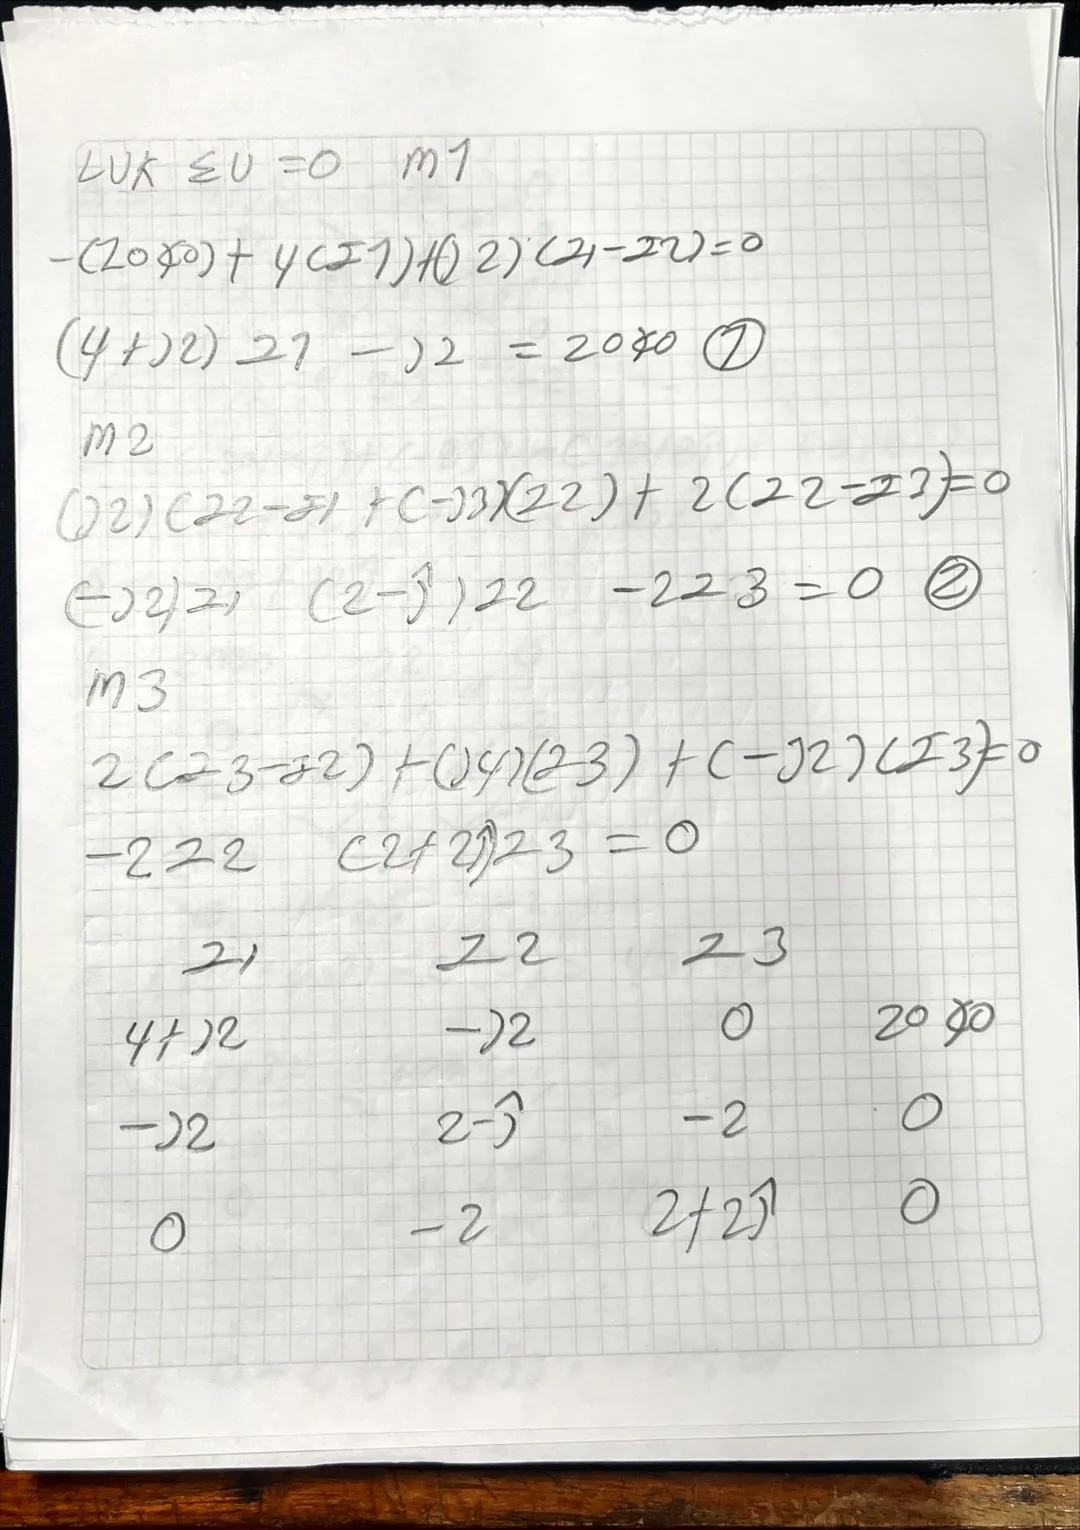 LVK ΣV = 0 M1
-(20∠0) + 4(I1) + (j2)(I1 - I2) = 0
(4 + j2) I1 - j2 = 20∠0 ①
M2
(j2)(I2 - I1 + (-j3)(I2) + 2(I2 - I3) = 0
(-j2) I1 (2 - j) I2 - 2I3 = 0 ②
M3
2(I3 - I2) + (j4)(I3) + (-j2)(I3) = 0
-2I2 (2 + 2j) I3 = 0
I1 I2 I3
4 + j2 -j2 0 20∠0
-j2 2 - j -2 0
0 -2 2 + 2j 0